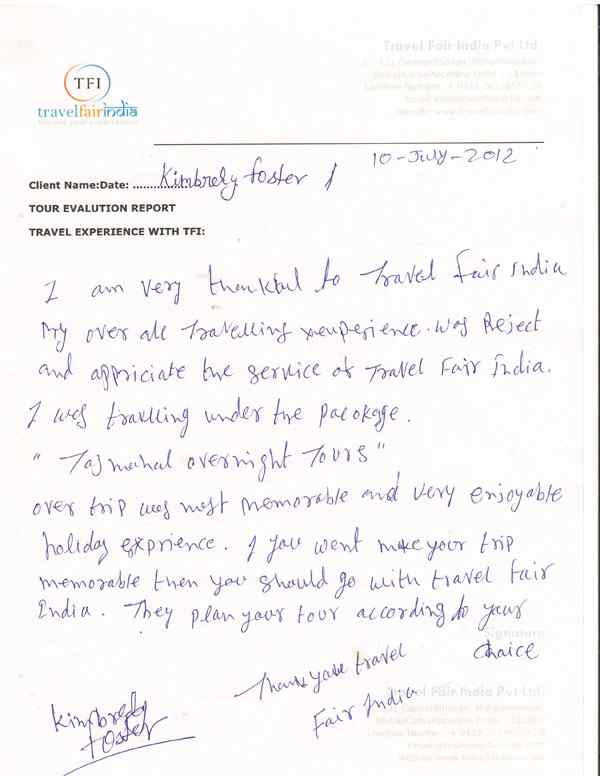 Travel Fair India Pvt Ltd.
TFI
travelfairindia
10-July-2012
Client Name:Date: ................ Kimbrely foster /
TOUR EVALUTION REPORT
TRAVEL EXPERIENCE WITH TFI:
I am very thankful to Travel fair India
My over all travelling was Reject
and appriciate the service of Travel Fair India.
I was travlling under the pacokage.
" Tajmahal overnight Tours "
over trip was most memorable and very enjoyable
holiday exprience. If you went make your trip
memorable then you should go with travel fair
India. They plan your tour according to your
Signature
choice
Thank you travel
Fair India
Travel Fair India Pvt Ltd.
Kimbrely
foster